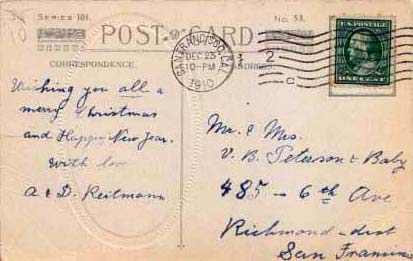 Series 101.
No. 53.
POST CARD
CORRESPONDENCE.
SAN FRANCISCO, CAL.
DEC 23
10-PM
1910
3
2
C
U.S. POSTAGE
ONE CENT
Wishing you all a
merry Christmas
and Happy New Year.
With love
A & D. Reitmann
Mr. & Mrs.
V. B. Peterson & Baby
485 - 6th Ave
Richmond - dist
San Francisco